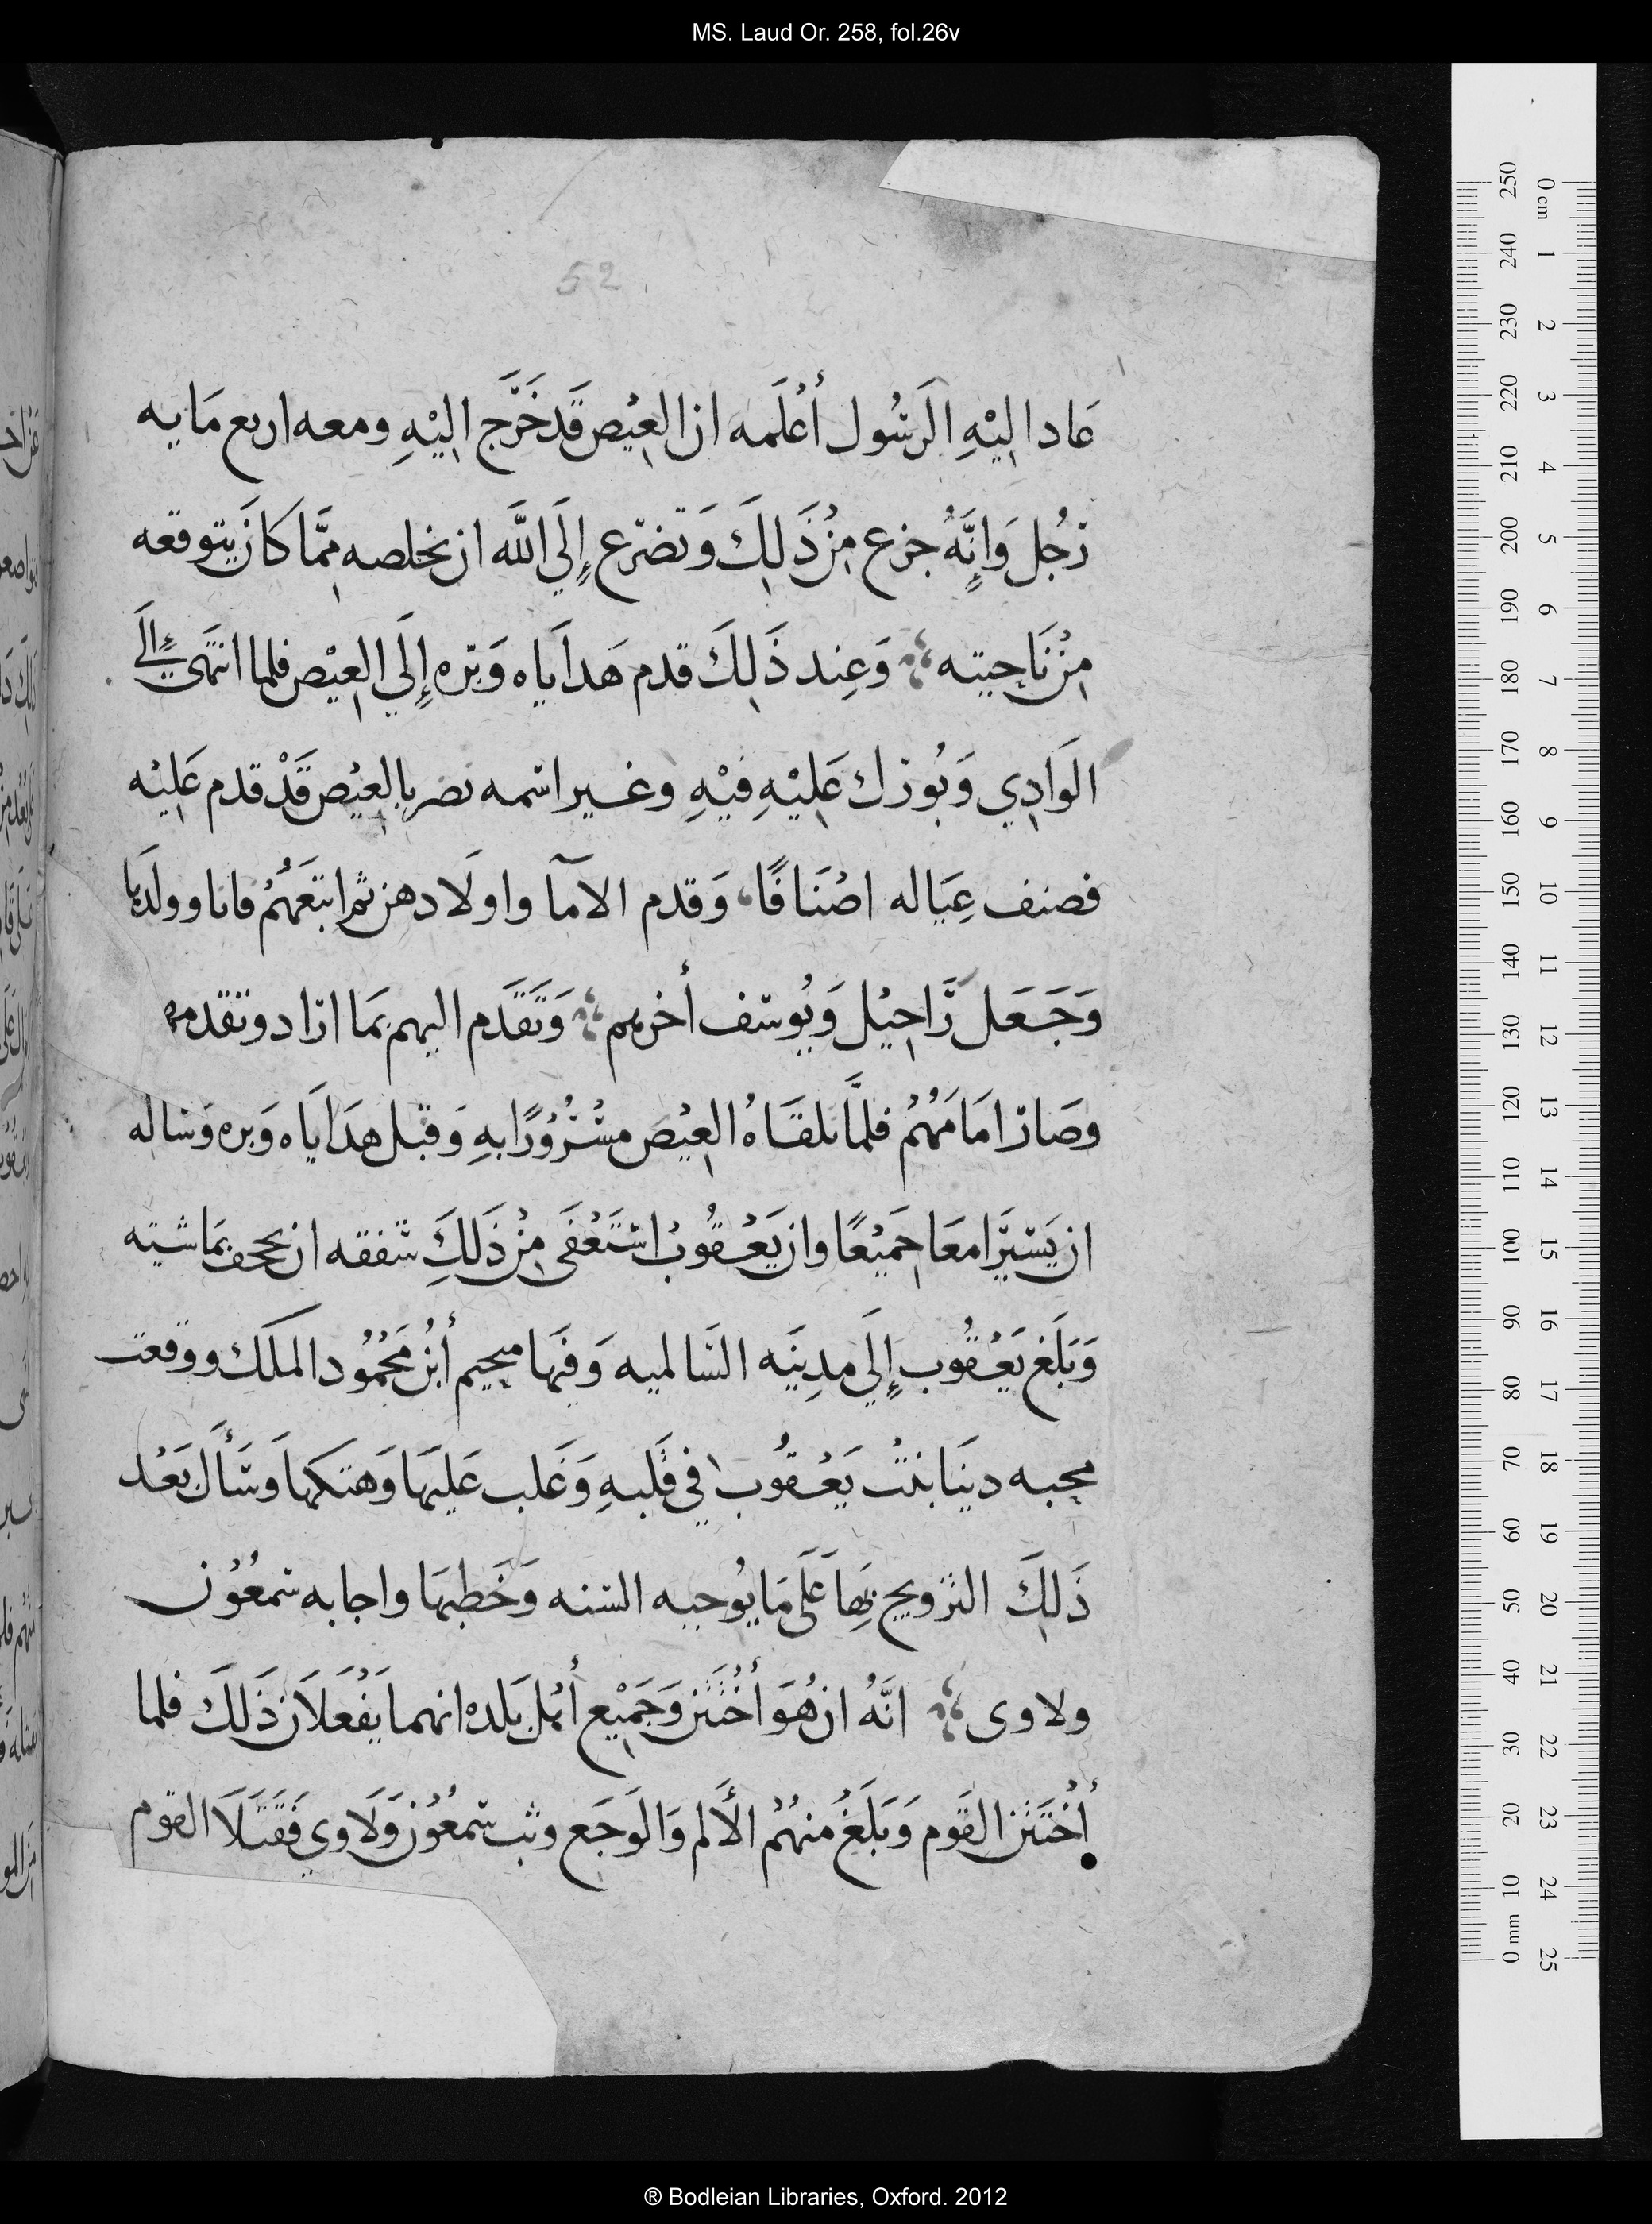 MS. Laud Or. 258, fol.26v
52
عَاد اليْهِ الَرسُول أعْلَمه ان العِيْص قَد خَرَّج اليْهِ ومعه اربع مَايه
رَجُل وَانَّهُ جزع مِنْ ذَلِكَ وَتضرّع إِلَي اللَّه ان يخلصه مِمَّا كان يتوقعه
مِنْ نَاحِيته وَعِند ذَلِكَ قدم هَدايَاه وَبره إِلَي العِيْص فلما انتَهَي إلَي
الوَادِي وَبُورك عَليْهِ فيْهِ وغير اسمه نضر بالعِيْص قَدْ قدم عَليْه
فصنف عِيَاله اصْنَافًا وَقدم الامآ واولَادهن ثم اتبَعَهُمْ فانا وولَديا
وَجَعَل رَّاحِيْل وَيُوسف أخرهم وَتَقَدَم اليهم بمَا اراد وتقدمهم
وصَار امَامَهُمْ فلمَّا تلقَاهُ العِيْص مسْرُوْرًا بهِ وَقبل هدَايَاه وَبره وَساله
ان يَسيَرا معَا جَمِيْعًا وان يَعْقُوبْ استَعْفَي مِنْ ذَلكِ شفقه ان يجحف بمَاشيته
وَبَلَغ يَعْقُوب إِلَي مدِينَه السَالميه وَفيَها سحيم أبْن مَحْمُود الملَك ووقعت
محبه دينَا بنتْ يَعْقُوب في قَلبهِ وَغَلب عَليهَا وَهتكها وَسَأَل بَعْد
ذَلِكَ التزويج بهَا عَلَي مَا يُوجبه السنه وَخَطبهَا واجابه سمعُوْن
ولاوى انَّهُ ان هُوَ أخْتَتَن وَجَمِيْع أهْل بَلده انهما يَفْعَلَان ذَلكَ فلما
أخْتَتَن القَوم وَبَلَغُ منهُمْ الأَلم وَالوَجَع وثب سمعُوْن وَلَاوي فَقَتَلَا القوم
® Bodleian Libraries, Oxford. 2012